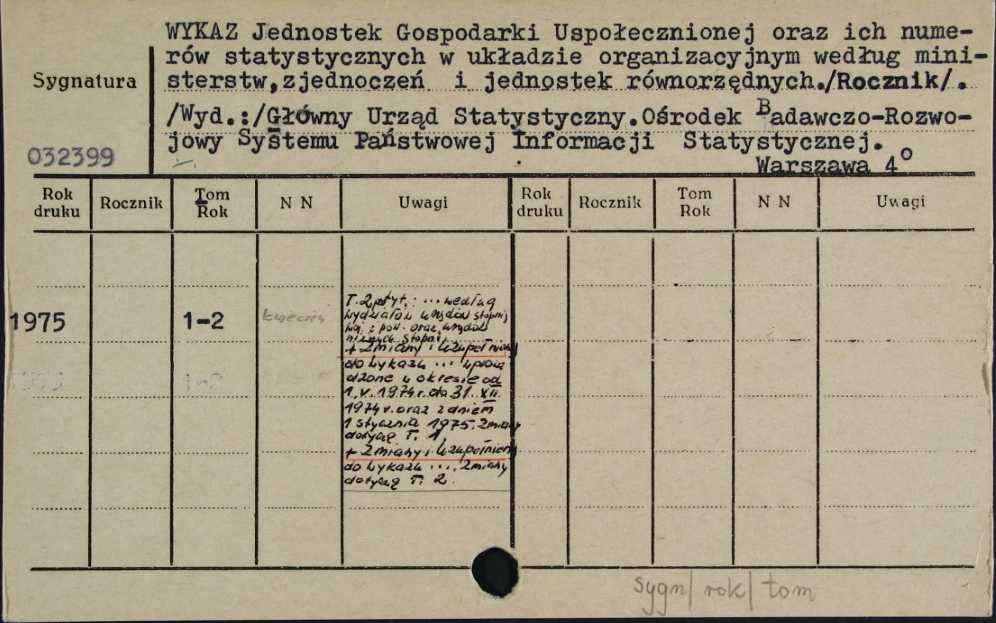 WYKAZ Jednostek Gospodarki Uspołecznionej oraz ich nume-
rów statystycznych w układzie organizacyjnym według mini-
sterstw,zjednoczeń i jednostek równorzędnych./Rocznik/.
/Wyd.:/Główny Urząd Statystyczny.Ośrodek Badawczo-Rozwo-
jowy Systemu Państwowej Informacji Statystycznej.
Warszawa 4°
Sygnatura
032399
Rok druku Rocznik Tom Rok N N Uwagi Rok druku Rocznik Tom Rok N N Uwagi
1975 1-2
T. 2 : ... według
wydziałów urzędów stopnia
woj. i pow. oraz urzędów
niższych stopni
+ Zmiany i uzupełnienia
do wykazu ... wprowa
dzone w okresie od
1.V.1974r. do 31.XII.
1974r. oraz z dniem
1 stycznia 1975. Zmiany
dotyczą T. 1,
+ Zmiany i uzupełnienia
do wykazu .... Zmiany
dotyczą T. 2.
sygn/ rok/ tom